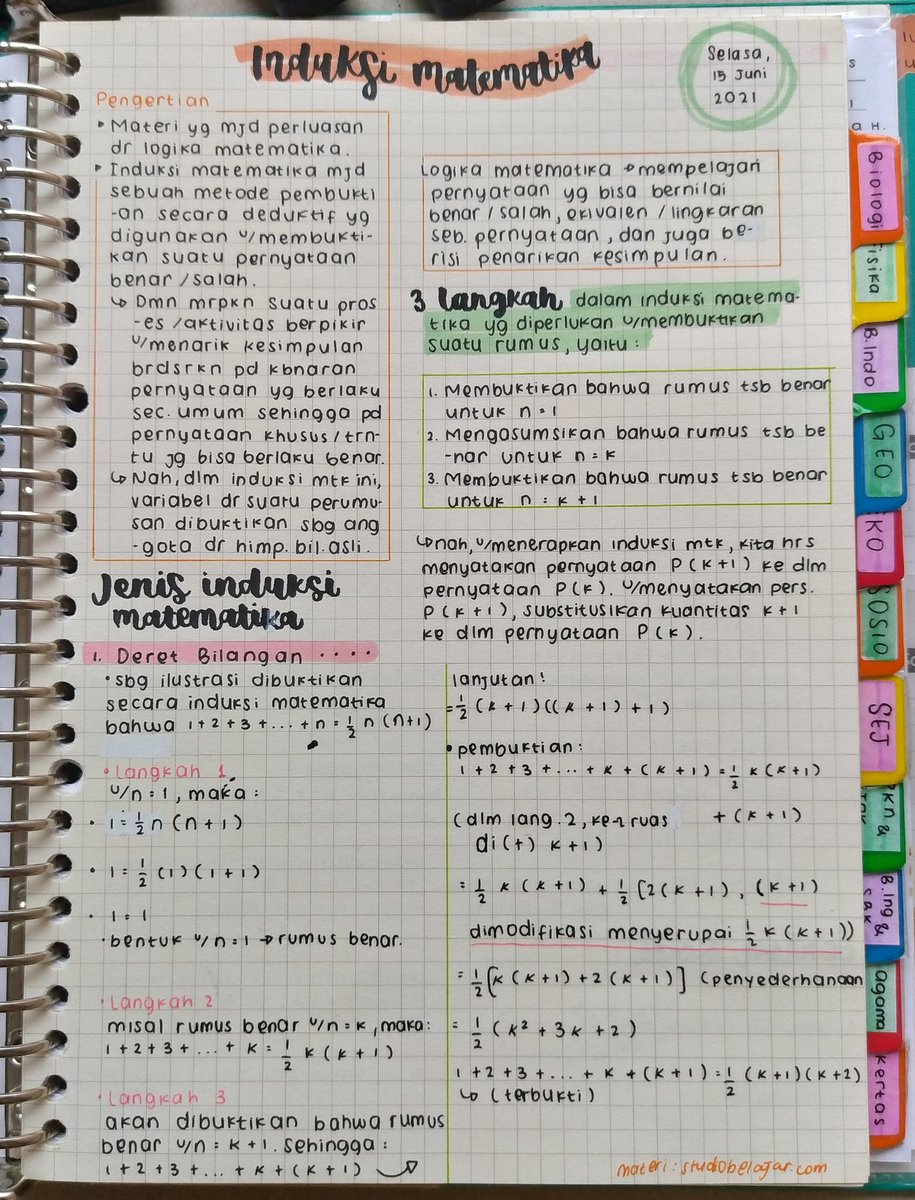 Induksi matematika
Selasa,
15 Juni
2021
Pengertian
• Materi yg mjd perluasan
dr logika matematika.
• Induksi matematika mjd
sebuah metode pembukti
-an secara deduktif yg
digunakan u/membukti-
kan suatu pernyataan
benar/salah.
↳ Dmn mrpkn suatu pros
-es/aktivitas berpikir
u/menarik kesimpulan
brdsrkn pd kbnaran
pernyataan yg berlaku
sec. umum sehingga pd
pernyataan khusus/trn-
tu jg bisa berlaku benar.
↳ Nah, dlm induksi mtk ini,
variabel dr suatu perumu-
san dibuktikan sbg ang
-gota dr himp. bil. asli.
Logika matematika → mempelajari
pernyataan yg bisa bernilai
benar/salah, ekivalen/lingkaran
seb. pernyataan, dan juga be-
risi penarikan kesimpulan.
3 langkah dalam induksi matema-
tika yg diperlukan u/membuktikan
suatu rumus, yaitu:
1. Membuktikan bahwa rumus tsb benar
untuk n = 1
2. Mengasumsikan bahwa rumus tsb be
-nar untuk n = k
3. Membuktikan bahwa rumus tsb benar
untuk n = k + 1
↳ nah, u/menerapkan induksi mtk, kita hrs
menyatakan pernyataan P(k+1) ke dlm
pernyataan P(k). u/menyatakan pers.
P(k+1), substitusikan kuantitas k+1
ke dlm pernyataan P(k).
Jenis induksi
matematika
1. Deret Bilangan ....
• sbg ilustrasi dibuktikan
secara induksi matematika
bahwa 1+2+3+...+n = ½ n (n+1)
• Langkah 1
u/n=1, maka:
• 1 = ½ n (n+1)
• 1 = ½ (1) (1+1)
• 1 = 1
• bentuk u/n=1 → rumus benar.
• Langkah 2
misal rumus benar u/n=k, maka:
1+2+3+...+k = ½ k (k+1)
• Langkah 3
akan dibuktikan bahwa rumus
benar u/n = k+1. Sehingga:
1+2+3+...+k+(k+1)
lanjutan!
= ½ (k+1)((k+1)+1)
• pembuktian:
1+2+3+...+k+(k+1) = ½ k(k+1)
+ (k+1)
(dlm lang. 2, ke-2 ruas
di(+) k+1)
= ½ k(k+1) + ½ [2(k+1), (k+1)
dimodifikasi menyerupai ½ k(k+1))
= ½ [k(k+1)+2(k+1)] (penyederhanaan
= ½ (k² + 3k + 2)
1+2+3+...+k+(k+1) = ½ (k+1)(k+2)
↳ (terbukti)
materi: studiobelajar.com
Biologi
Fisika
B.Indo
GEO
EKO
SOSIO
SEJ
pkn &
B.Ing &
SBK
Agama
kertas